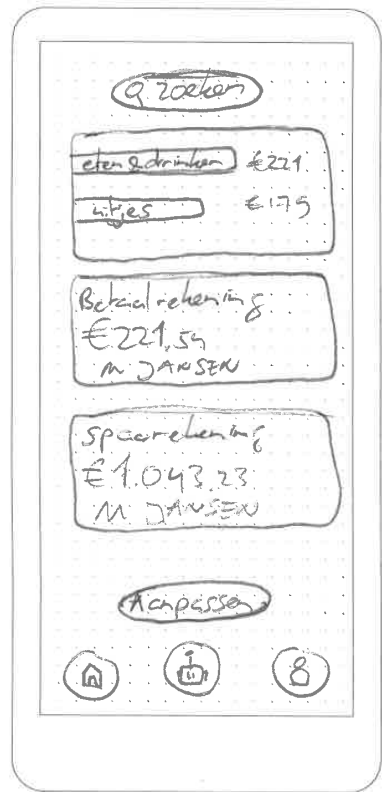 zoeken
eten & drinken €221
uitjes €175
Betaalrekening
€221,54
M JANSEN
Spaarrekening
€1.043.23
M JANSEN
Aanpassen